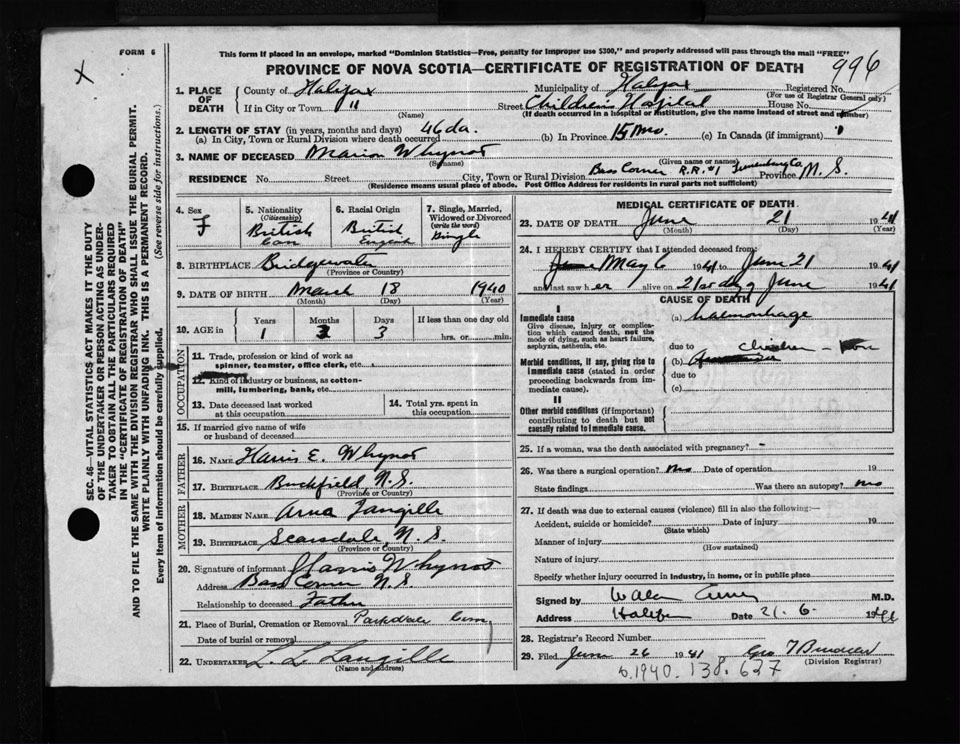 FORM 6
This form if placed in an envelope, marked "Dominion Statistics—Free, penalty for improper use $300," and properly addressed will pass through the mail "FREE"
PROVINCE OF NOVA SCOTIA—CERTIFICATE OF REGISTRATION OF DEATH
996
X
1. PLACE OF DEATH
County of Halifax Municipality of Halifax Registered No.
(For use of Registrar General only)
If in City or Town " Street Children's Hospital House No.
(Name) (If death occurred in a hospital or institution, give the name instead of street and number)
2. LENGTH OF STAY (in years, months and days)
(a) In City, Town or Rural Division where death occurred 46 da. (b) In Province 15 mo. (c) In Canada (if immigrant)
3. NAME OF DECEASED Marion Whynot
(Surname) (Given name or names)
RESIDENCE No. Street City, Town or Rural Division Bass Corner R.R.#1 Lunenburg Co. Province N.S.
(Residence means usual place of abode. Post Office Address for residents in rural parts not sufficient)
4. Sex F
5. Nationality (Citizenship) British Can
6. Racial Origin British English
7. Single, Married, Widowed or Divorced (write the word) Single
8. BIRTHPLACE Bridgewater
(Province or Country)
9. DATE OF BIRTH March 18 1940
(Month) (Day) (Year)
10. AGE in Years Months Days If less than one day old
1 3 3 hrs. or min.
OCCUPATION
11. Trade, profession or kind of work as spinner, teamster, office clerk, etc.
12. Kind of industry or business, as cotton-mill, lumbering, bank, etc.
13. Date deceased last worked at this occupation
14. Total yrs. spent in this occupation
15. If married give name of wife or husband of deceased
FATHER
16. Name Harris E. Whynot
17. Birthplace Buckfield, N.S.
(Province or Country)
MOTHER
18. Maiden Name Langille
19. Birthplace Scarsdale, N.S.
(Province or Country)
20. Signature of informant Harris Whynot
Address Bass Corner N.S.
Relationship to deceased Father
21. Place of Burial, Cremation or Removal Parkdale Cem
Date of burial or removal
22. Undertaker L. L. Langille
(Name and address)
MEDICAL CERTIFICATE OF DEATH
23. DATE OF DEATH June 21 1941
(Month) (Day) (Year)
24. I HEREBY CERTIFY that I attended deceased from:
May 6 1941 to June 21 1941
and last saw her alive on 21st day of June 1941
CAUSE OF DEATH
I
Immediate cause
Give disease, injury or complication which caused death, not the mode of dying, such as heart failure, asphyxia, asthenia, etc.
(a) haemorrhage
due to
Morbid conditions, if any, giving rise to immediate cause (stated in order proceeding backwards from immediate cause).
(b)
due to
(c)
II
Other morbid conditions (if important) contributing to death but not causally related to immediate cause.
25. If a woman, was the death associated with pregnancy? -
26. Was there a surgical operation? no Date of operation 19
State findings Was there an autopsy? no
27. If death was due to external causes (violence) fill in also the following:—
Accident, suicide or homicide? Date of injury 19
(State which)
Manner of injury
(How sustained)
Nature of injury
Specify whether injury occurred in industry, in home, or in public place
Signed by M.D.
Address Halifax Date 21. 6. 1941
28. Registrar's Record Number
29. Filed June 26 1941 Geo
(Division Registrar)
b. 1940. 138. 627
SEC. 46—VITAL STATISTICS ACT MAKES IT THE DUTY
OF THE UNDERTAKER OR PERSON ACTING AS UNDER-
TAKER TO OBTAIN ALL THE PARTICULARS REQUIRED
IN THE "CERTIFICATE OF REGISTRATION OF DEATH"
AND TO FILE THE SAME WITH THE DIVISION REGISTRAR WHO SHALL ISSUE THE BURIAL PERMIT.
WRITE PLAINLY WITH UNFADING INK. THIS IS A PERMANENT RECORD.
Every item of information should be carefully supplied. (See reverse side for instructions.)